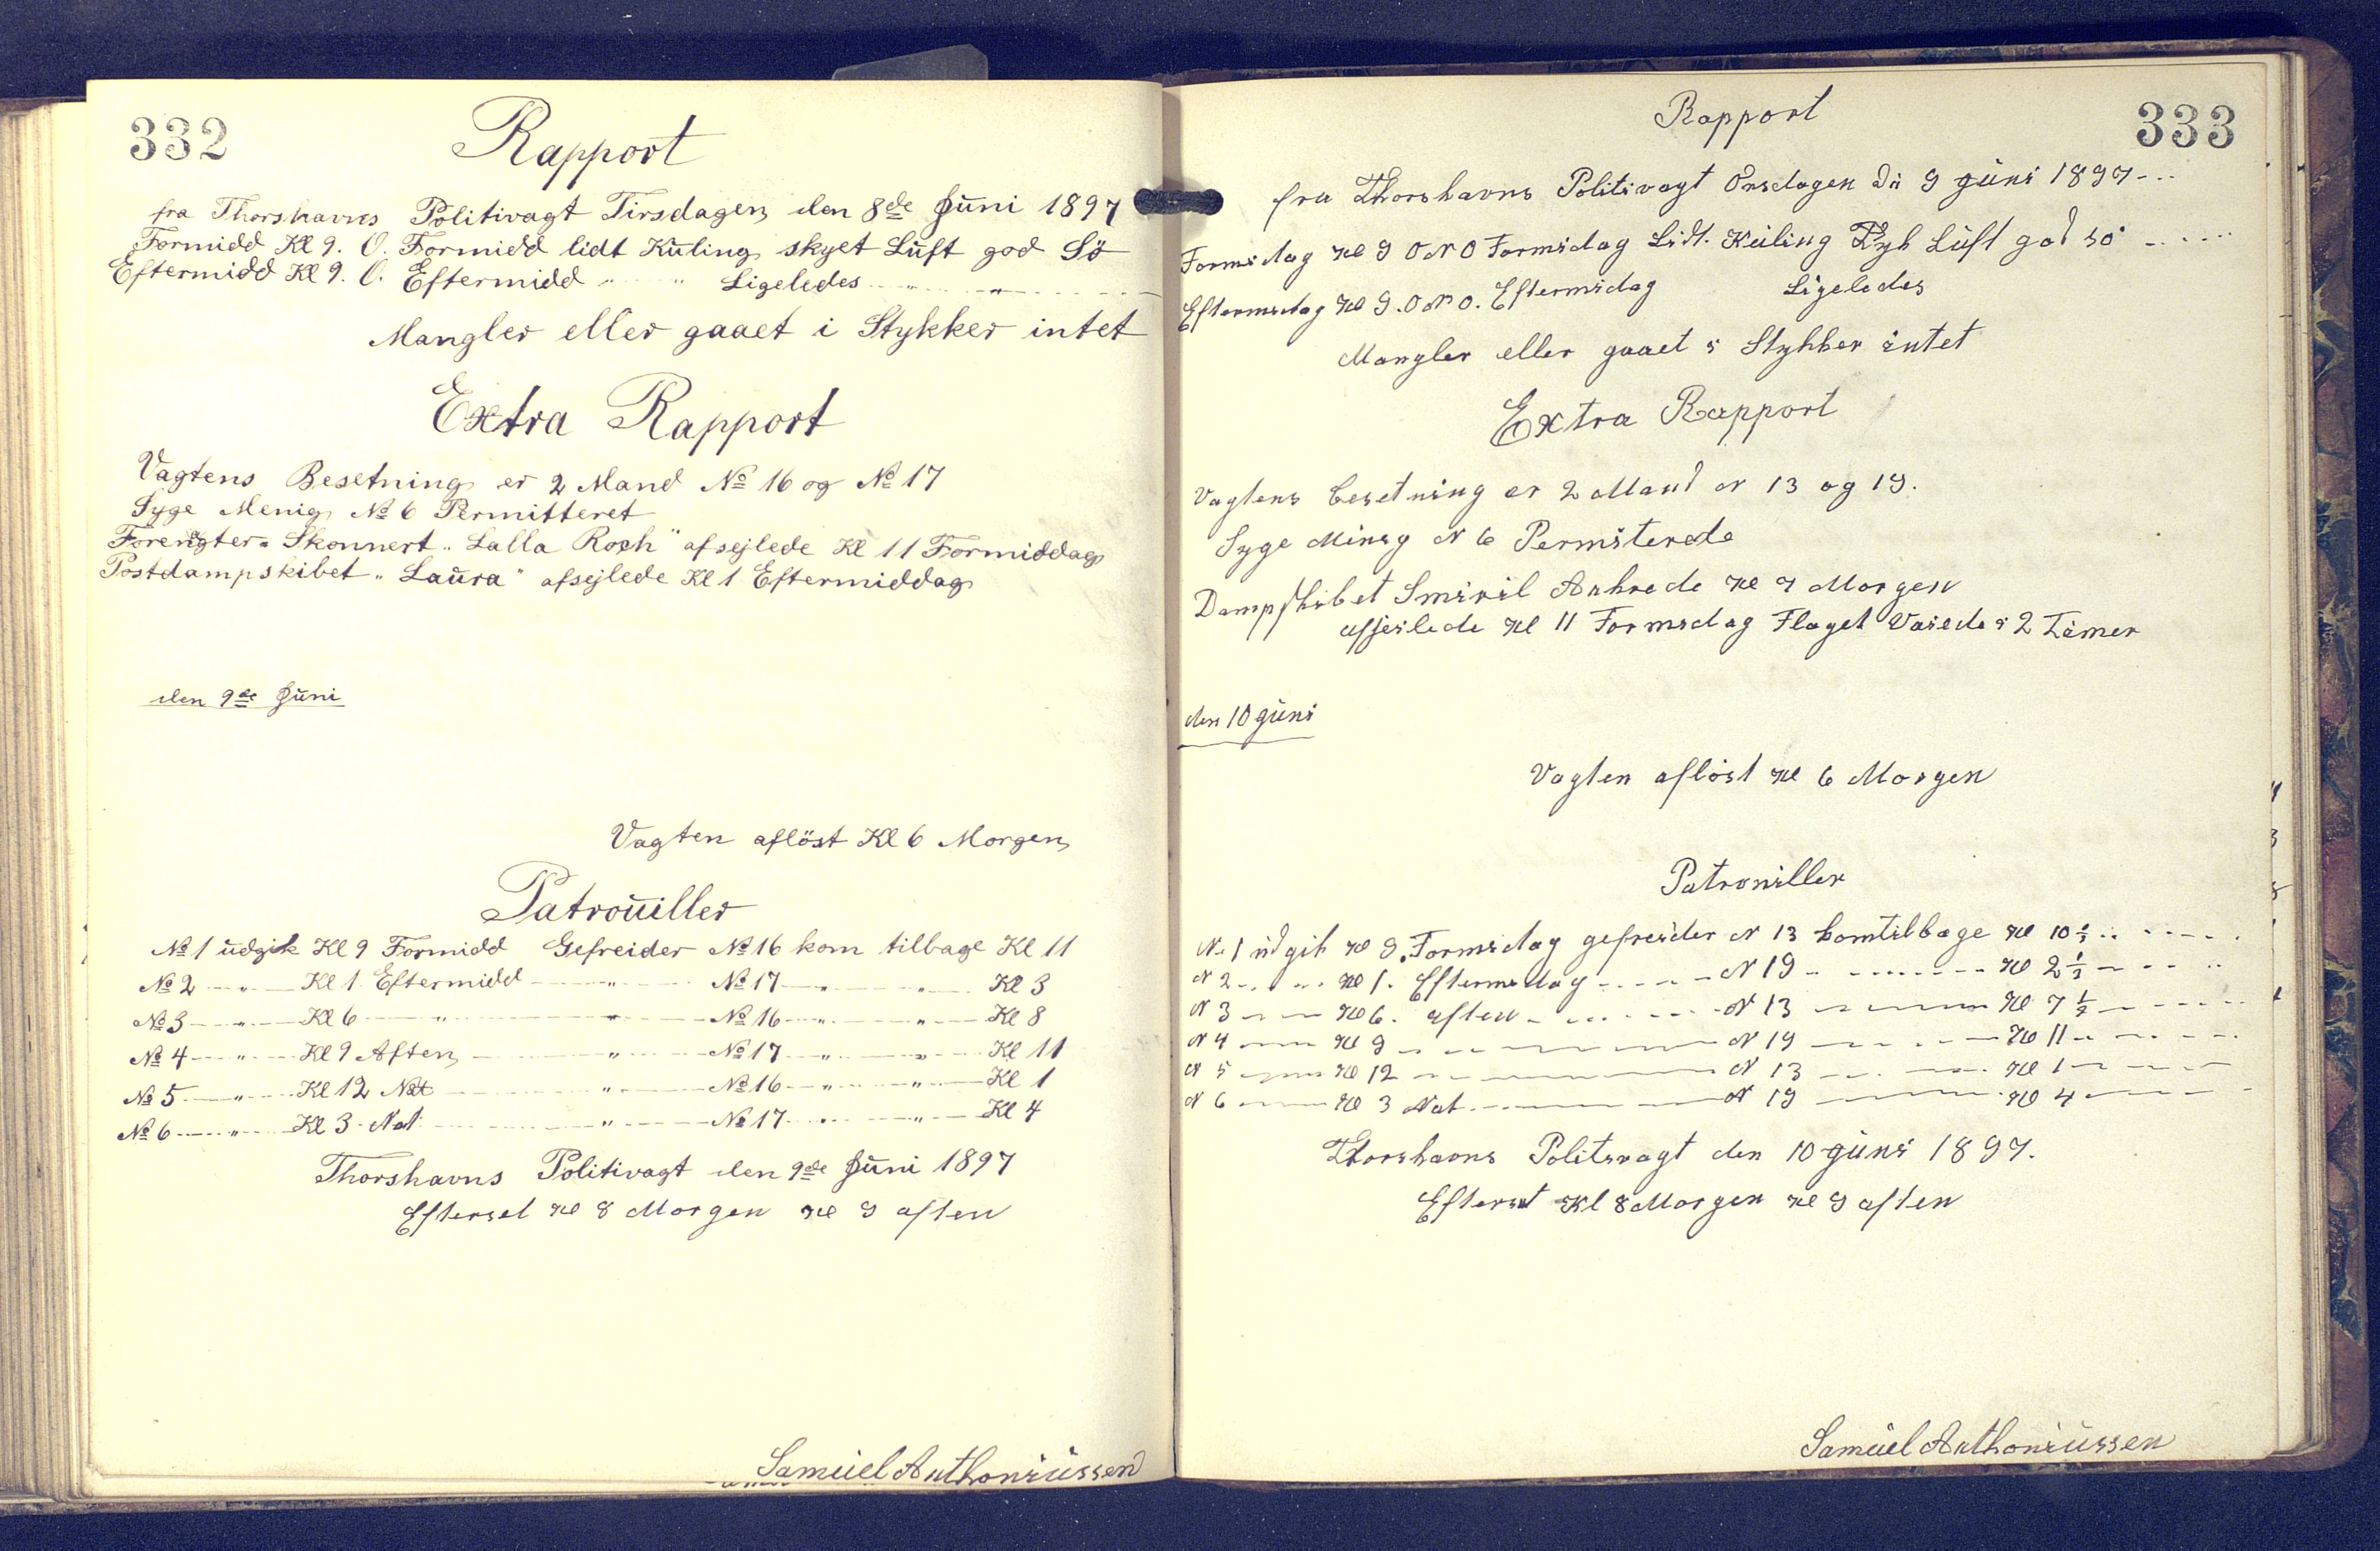 332
Rapport
fra Thorshavns Politivagt Tirsdagen den 8de Juni 1897
Formidd Kl 9. O. Formidd lidt Kuling skyet Luft god Sö
Eftermidd Kl 9. O. Eftermidd " " Ligeledes " "
Mangler eller gaaet i Stykker intet
Extra Rapport
Vagtens Besetning er 2 Mand No 16 og No 17
Syge Menig No 6 Permitteret
Skonnert "Lalla Rookh" afsejlede Kl 11 Formiddag
Postdampskibet "Laura" afsejlede Kl 1 Eftermiddag
den 9de Juni
Vagten aflöst Kl 6 Morgen
Patrouiller
No 1 udgik Kl 9 Formidd Gefreider No 16 kom tilbage Kl 11
No 2 " Kl 1 Eftermidd " No 17 " " Kl 3
No 3 " Kl 6 " " No 16 " " Kl 8
No 4 " Kl 9 Aften " No 17 " " Kl 11
No 5 " Kl 12 Nat " No 16 " " Kl 1
No 6 " Kl 3 Nat " No 17 " " Kl 4
Thorshavns Politivagt den 9de Juni 1897
Efterset Kl 8 Morgen Kl 9 aften
Samuel Anthoniussen
333
Rapport
fra Thorshavns Politivagt Onsdagen D: 9 juni 1897
Formidag Kl 9 O N O Formidag Lidt Kuling Tyk Luft god sö
Eftermidag Kl 9. O N O. Eftermidag Ligeledes
Mangler eller gaaet i Stykker intet
Extra Rapport
Vagtens besetning er 2 Mand N 13 og 19.
Syge Minig N 6 Permiterede
Dampskibet Smiril Ankrede Kl 7 Morgen
afsejlede Kl 11 Formidag Flaget Vaiede i 2 Timer
den 10 juni
Vagten aflöst Kl 6 Morgen
Patrouiller
N. 1 udgik Kl 9. Formidag gefreider N 13 komtilbage Kl 10 1/2
N 2 Kl 1. Eftermidag N 19 Kl 2 1/2
N 3 Kl 6. aften N 13 Kl 7 1/2
N 4 Kl 9 N 19 Kl 11
N 5 Kl 12 N 13 Kl 1
N 6 Kl 3 Nat N 19 Kl 4
Thorshavns Politivagt den 10 juni 1897.
Efterset Kl 8 Morgen Kl 9 aften
Samuel Anthoniussen